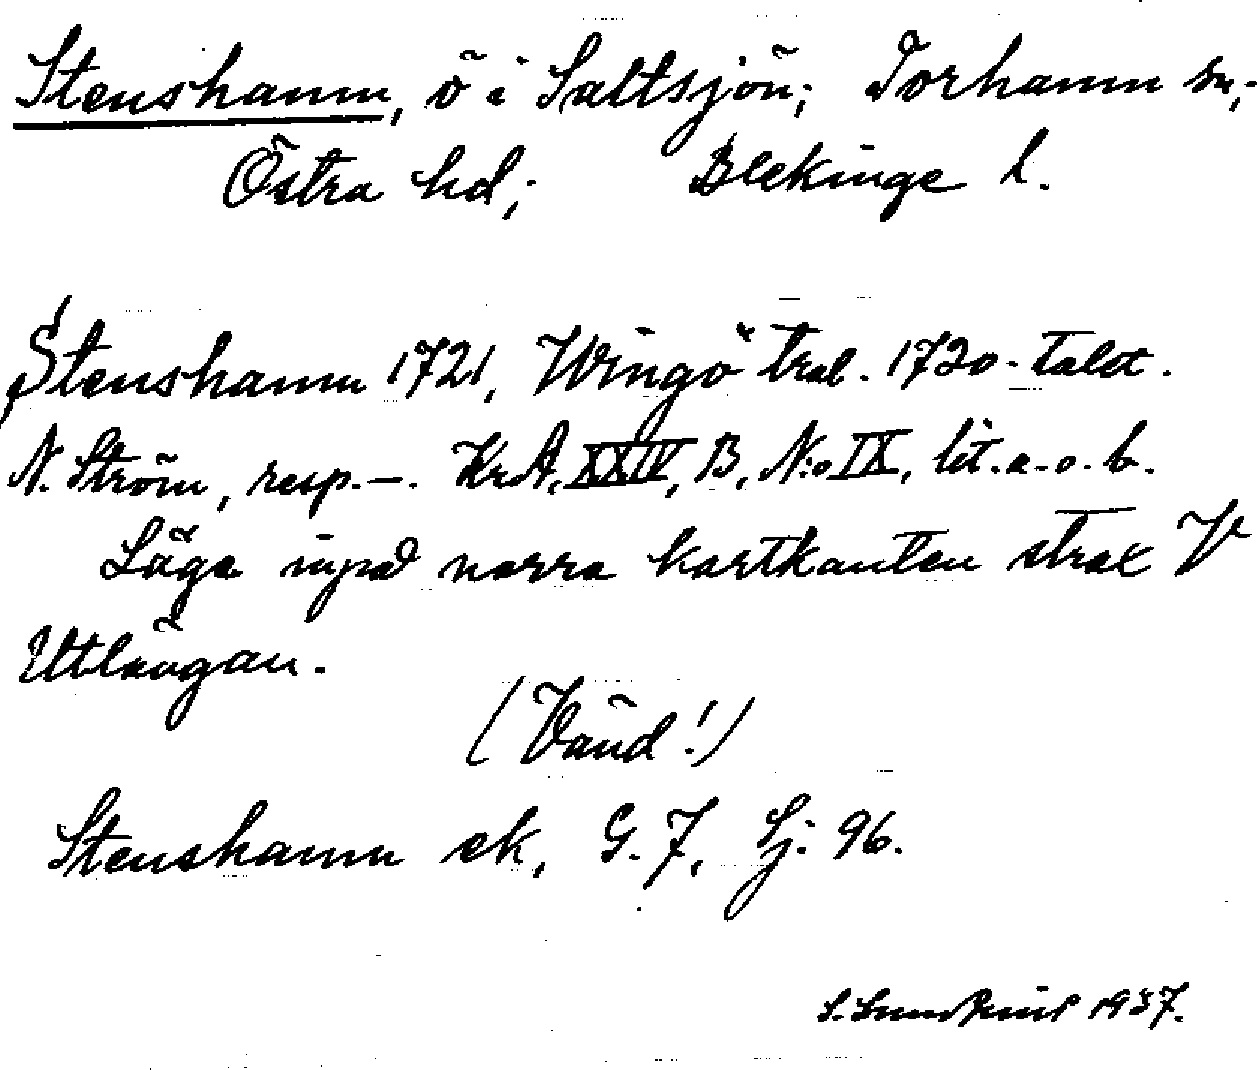 Stenshamn, ö i Saltsjön; Torhamn sn,
Östra hd; Blekinge l.
Stenshamn 1721, Wingö trol. 1720-talet.
N. Ström, resp. —. KrA, XXIV, B, N:o IX, lit. a. o. b.
Läge invid norra kartkanten strax V
Utlängan.
(Vänd!)
Stenshamn ek, G. 7, Sj: 96.
1937.